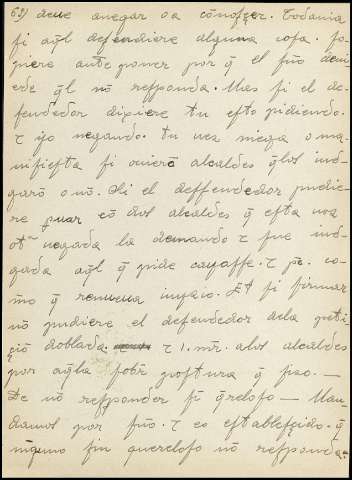 63) deue anegar oa cõnosçer. Todauia
si aq̃l defendiere alguna cosa. so-
piere ante poner por q̃ el fuo deui-
ede q̃l nõ responda. Mas si el de-
fendedor dixiere tu esto pidiendo.
τ ijo negando. tu uez niega o ma-
nifiesta si ouierẽ alcaldes q̃los iud-
garõ o nõ. Si el deffendedor pudie-
re prouar cõ dos alcaldes q̃ esta uez
negada la demando τ fue iud-
gada aq̃l q̃ pide cayasse. τ pe. co-
mo q̃ renueua iuyzio. Et si firmar
nõ pudiere el defendedor dela peti-
çiõ doblada. τ 1. mr̃. alos alcaldes
por aq̃lla sobr̃ postura q̃ fizo. —
De nõ responder si q̃reloso — Man
damos por fuo. τ es establesçido. q̃
ninguno sin quereloso nõ responda.